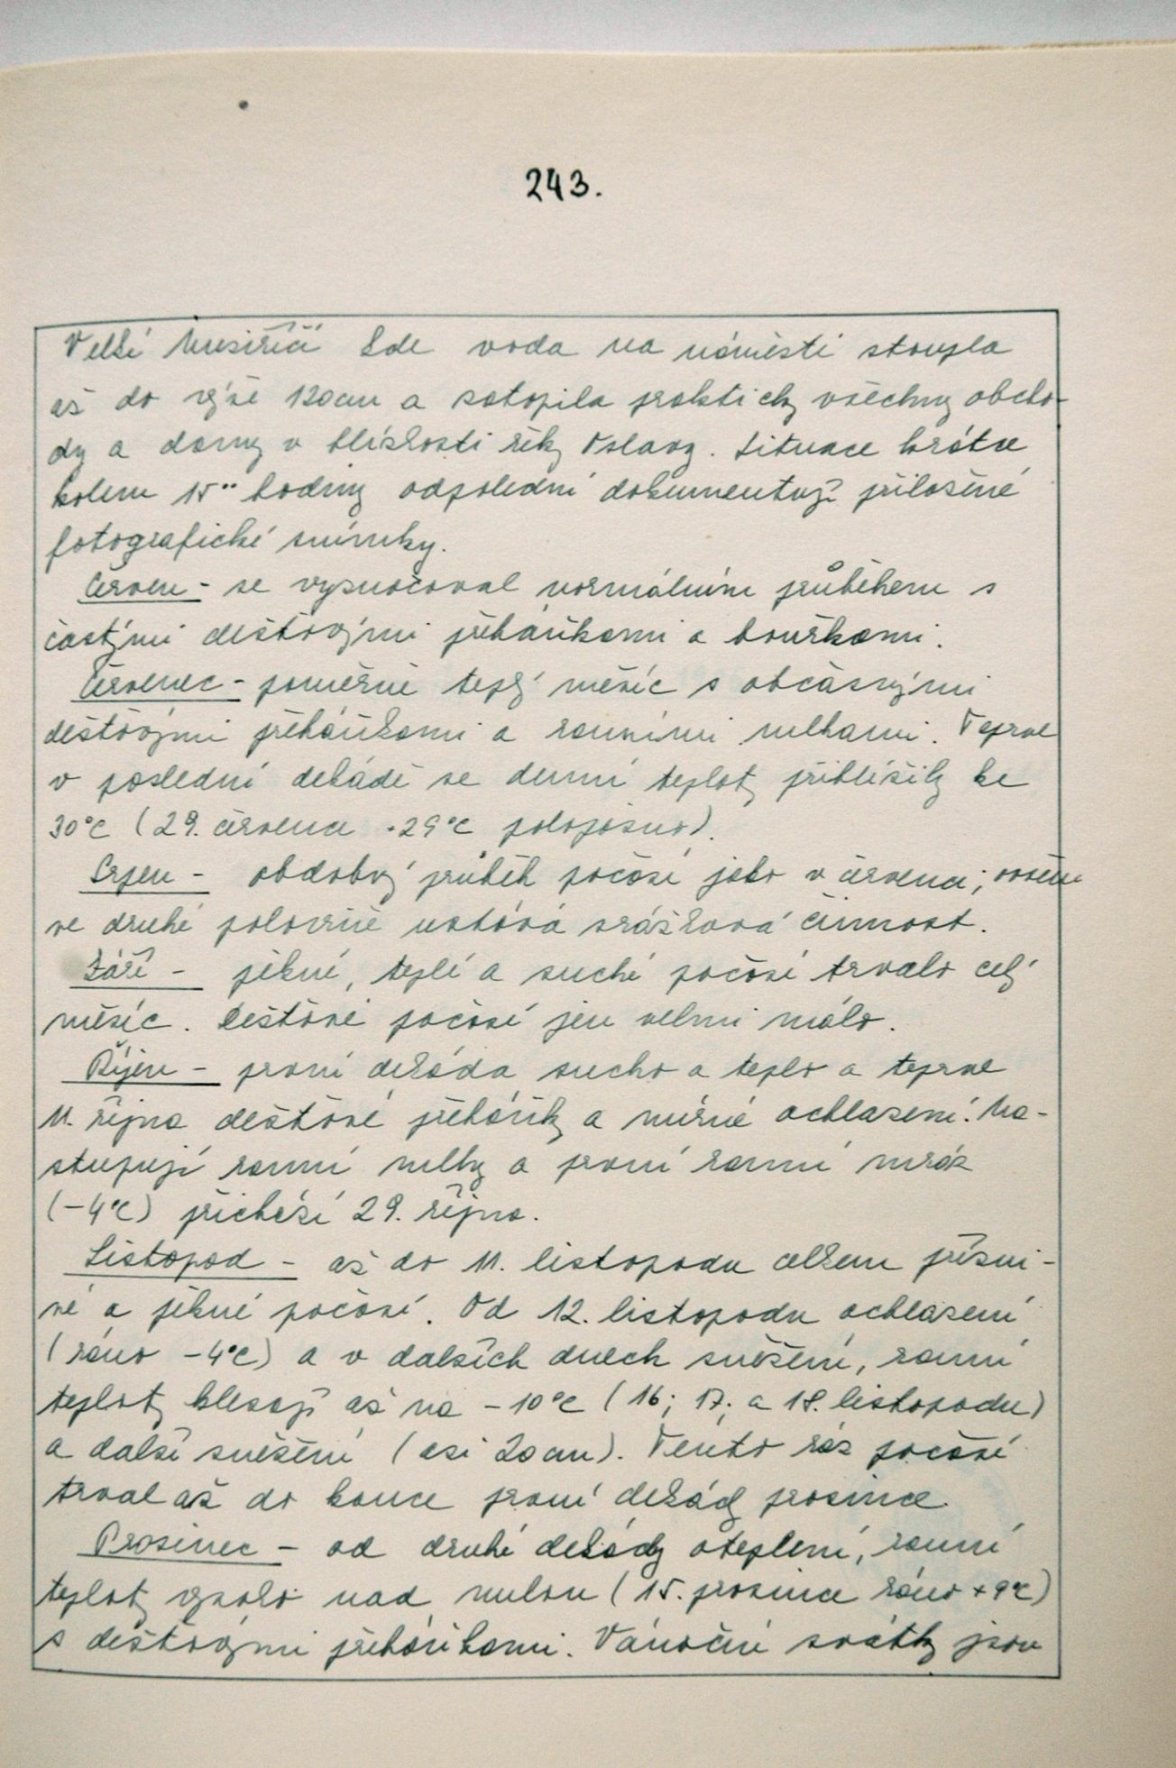 243.
Velké Meziříčí kde voda na náměstí stoupla
až do výše 120cm a zatopila prakticky všechny obcho-
dy a domy v blízkosti řeky Oslavy. Situace krátce
kolem 15°° hodiny odpolední dokumentují přiložené
fotografické snímky.
Červen - se vyznačoval normálním průběhem s
častými dešťovými přeháňkami a bouřkami.
Červenec - poměrně teplý měsíc s občasnými
dešťovými přeháňkami a ranními mlhami. Teprve
v poslední dekádě se denní teploty přiblížily ke
30°C (29. července -29°C polojasno).
Srpen - obdobný průběh počasí jako v červenci, ovšem
ve druhé polovině ustává srážková činnost.
Září - pěkné, teplé a suché počasí trvalo celý
měsíc. Deštivé počasí jen velmi málo.
Říjen - první dekáda sucho a teplo a teprve
11. října dešťové přeháňky a mírné ochlazení. Na-
stupují ranní mlhy a první ranní mráz
(-4°C) přichází 29. října.
Listopad - až do 11. listopadu celkem přízni-
vé a pěkné počasí. Od 12. listopadu ochlazení
(ráno -4°C) a v dalších dnech sněžení, ranní
teploty klesají až na -10°C (16; 17; a 18. listopadu)
a další sněžení (asi 20cm). Tento ráz počasí
trval až do konce první dekády prosince.
Prosinec - od druhé dekády oteplení, ranní
teploty vysoko nad nulou (15. prosince ráno +9°C)
s dešťovými přeháňkami. Vánoční svátky jsou